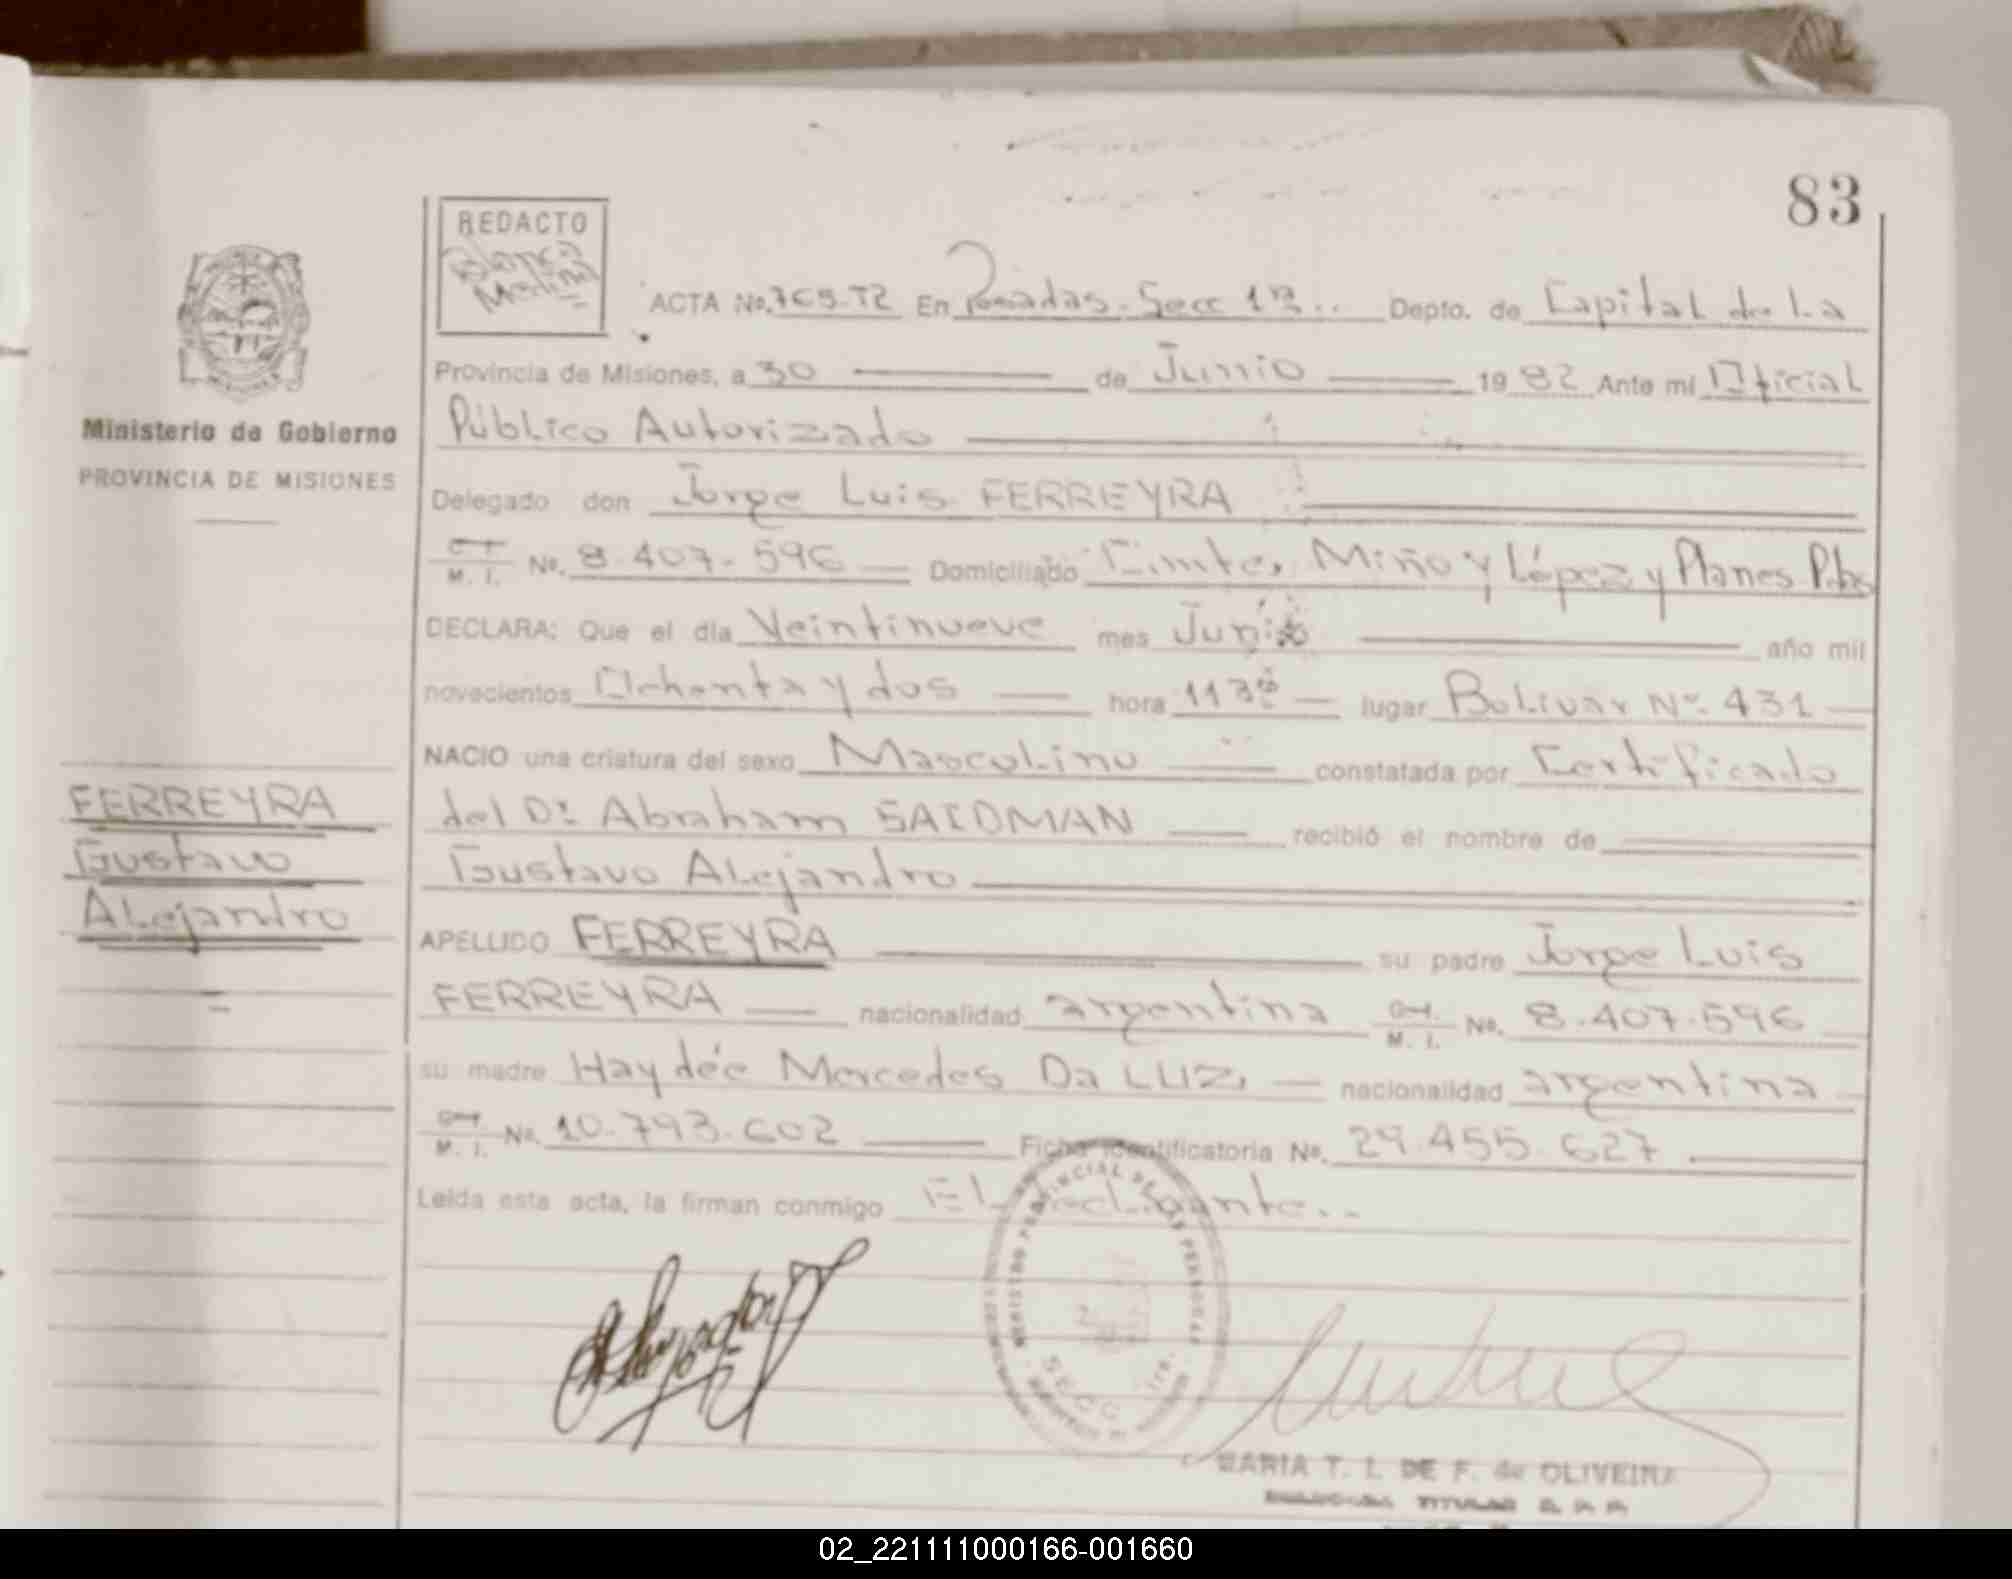 83
REDACTO
Blanca
Molina
ACTA No. 765-T2 En Posadas. Secc 1ra.. Depto. de Capital de La
Provincia de Misiones, a 30 de Junio 1982 Ante mi Oficial
Público Autorizado
Delegado don Jorge Luis FERREYRA
M. I. No. 8.407.596 Domiciliado Cmte. Miño y López y Planes Pdas
DECLARA: Que el día Veintinueve mes Junio año mil
novecientos Ochenta y dos hora 11 lugar Bolivar No. 431
NACIO una criatura del sexo Masculino constatada por Certificado
del Dr. Abraham SAIDMAN recibió el nombre de
Gustavo Alejandro
APELLIDO FERREYRA su padre Jorge Luis
FERREYRA nacionalidad argentina M. I. No. 8.407.596
su madre Haydée Mercedes Da LUZ, nacionalidad argentina
M. I. No. 10.793.602 Ficha identificatoria No. 29.455.627
Leída esta acta, la firman conmigo El declarante..
Ministerio de Gobierno
PROVINCIA DE MISIONES
FERREYRA
Gustavo
Alejandro
REGISTRO PROVINCIAL DE LAS PERSONAS
SECC 1ra.
MARIA T. I. DE F. de OLIVEIRA
TITULAR
02_221111000166-001660